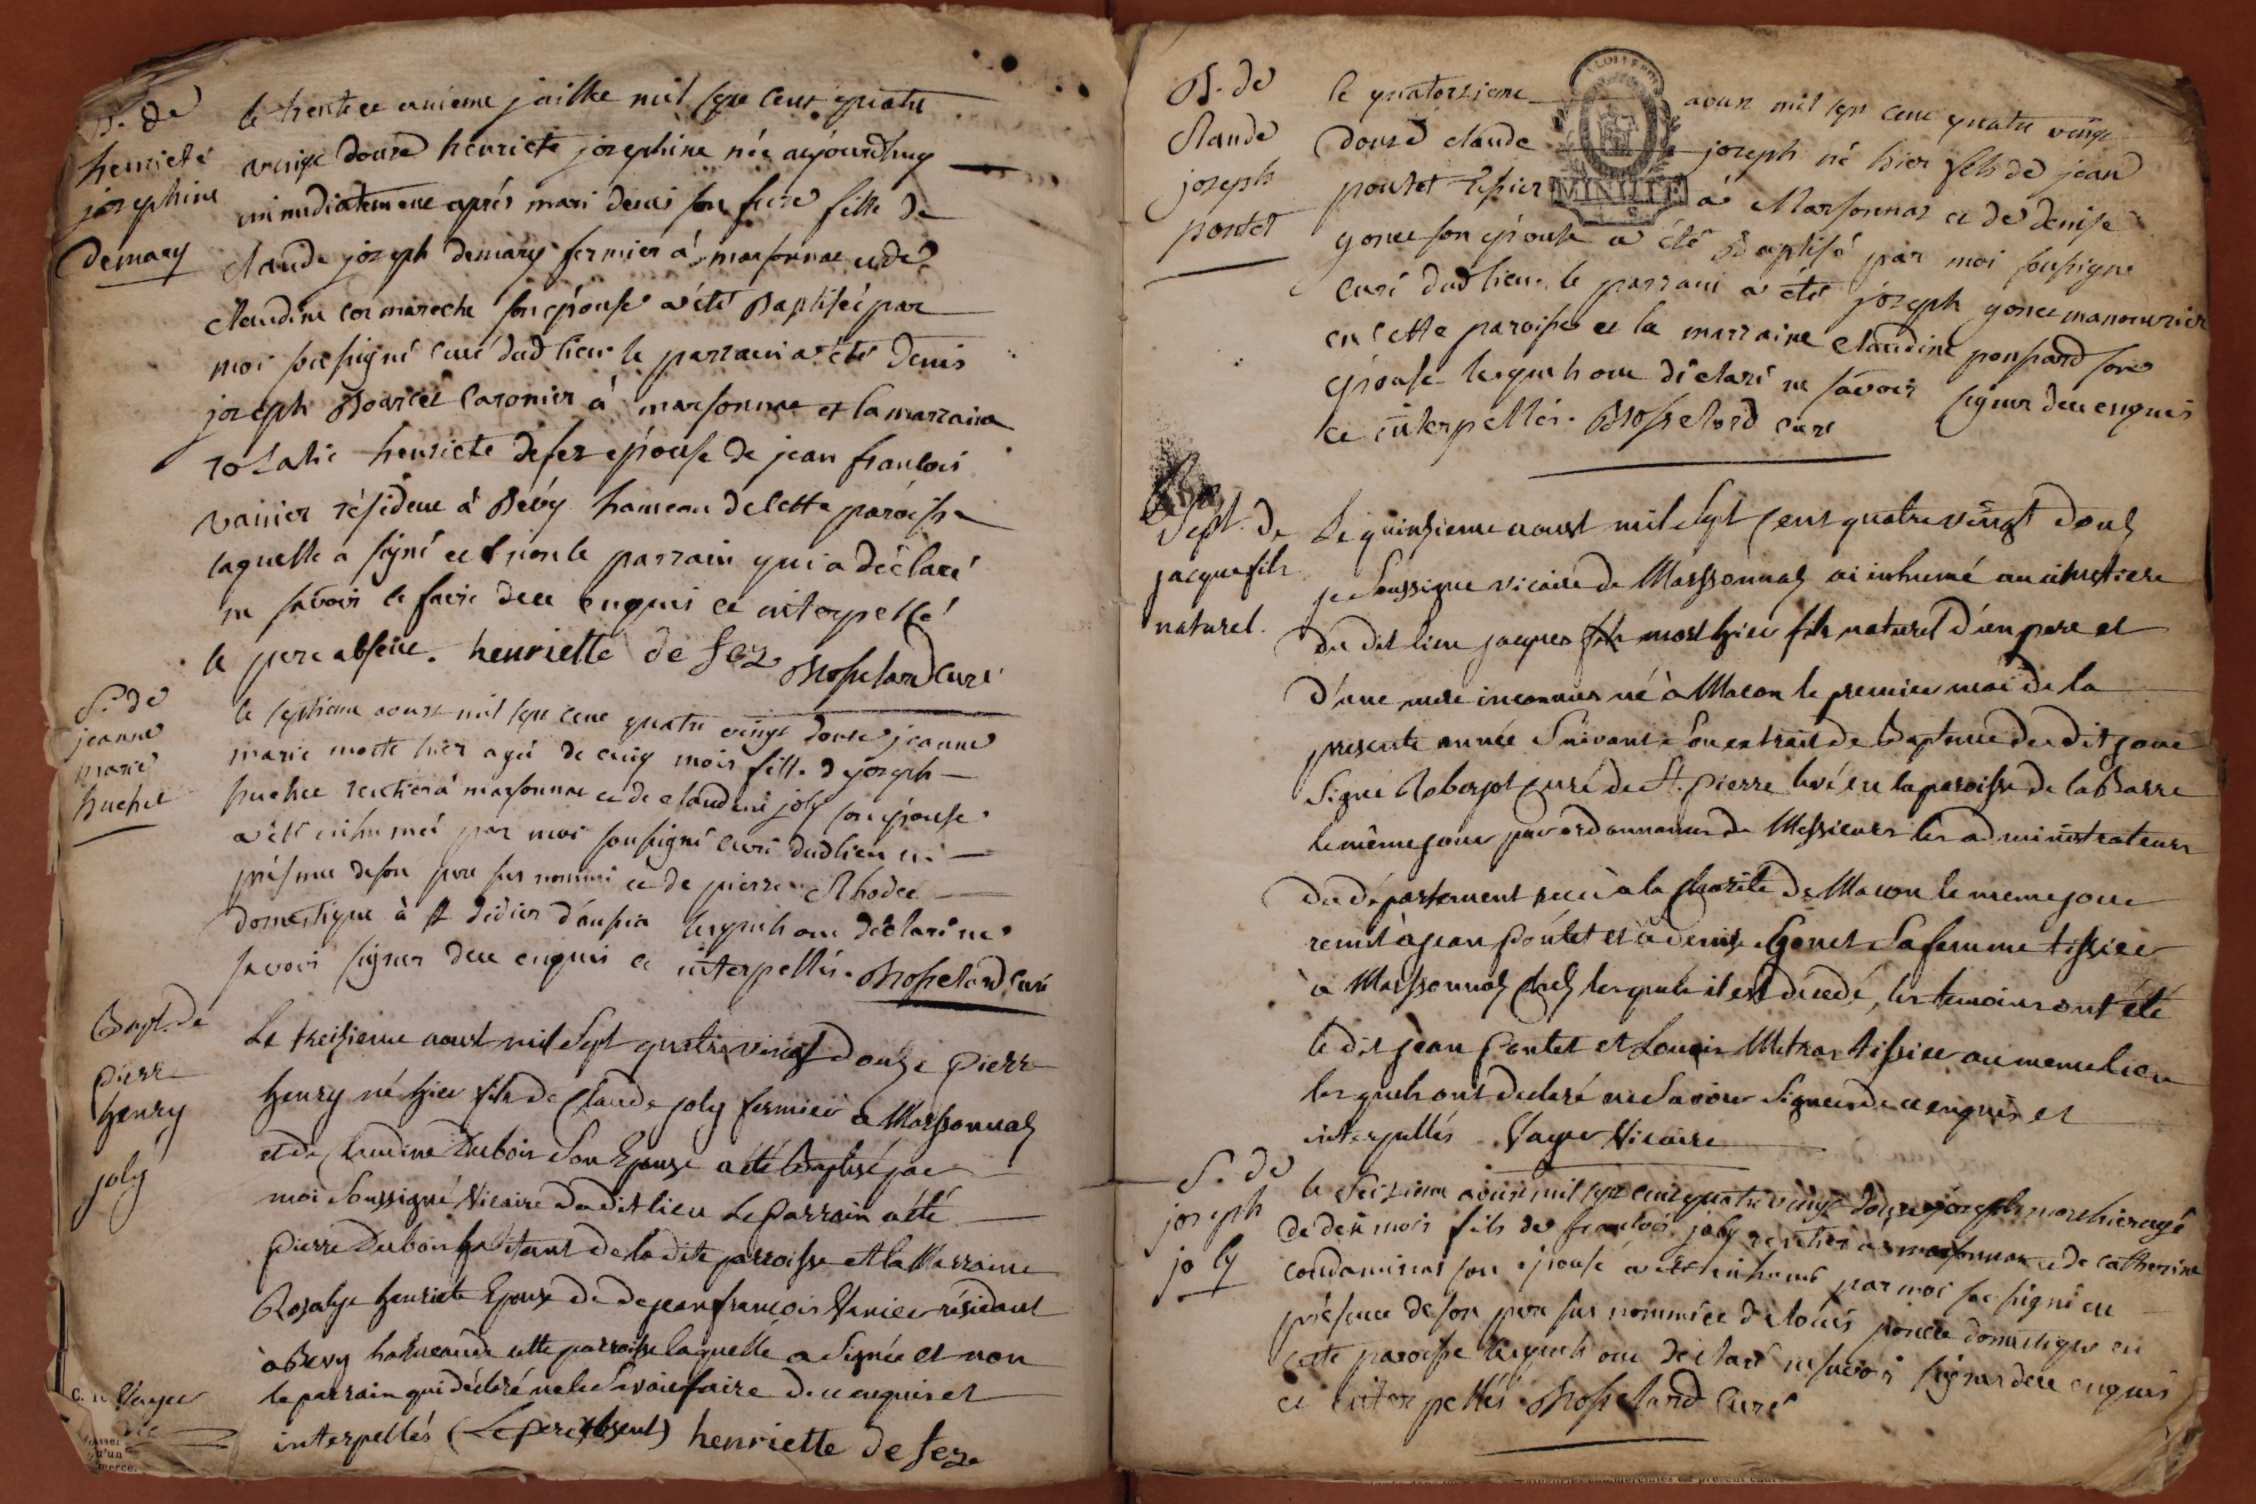 B. de
henriete
josephine
demary
le trente et unieme juillet mil sept cent quatre
vingt douze henriete josephine née aujourdhuy
immediatement après mari denis son frere fille de
claude joseph demary fermier à marsonnas et de
claudine cormareche son épouse a été Baptisée par
moi soussigné curé dud lieu le parrain a été denis
joseph Bourcet à marsonnas et la marraine
rosalie henriete defez épouse de jean francois
vanier résident à Bévy hameau de cette paroisse
laquelle a signé et non le parrain qui a déclaré
ne savoir le faire de ce enquis et interpellé
le pere absent. henriette de fez Brosselard curé
S. de
jeanne
marie
huchet
le septieme aoust mil sept cent quatre vingt douze jeanne
marie morte hier agée de cinq mois fille de joseph
huchet rentier à marsonnas et de claudine joly son épouse
a été inhumée par moi soussigné curé dud lieu en
présence de son pere sus nommé et de pierre
domestique à st didier d'aussia lesquels ont déclaré ne
savoir signer de ce enquis et interpellés. Brosselard curé
Bapt. de
pierre
henry
joly
Le treizieme aoust mil Sept quatre vingt douze pierre
henry né hier fils de Claude joly fermier à Marssonnas
et de Claudine Dubois Son Epouse a été Baptisé par
moi Soussigné Vicaire du dit lieu Le parrain a été
pierre Dubois habitant de la dite parroisse et la Marraine
Rosalye henriete Epouse de de jean francois Vanier résidant
à Bevy hameau de cette parroisse laquelle a Signée et non
le parrain qui déclaré ne le Savoir faire de ce enquis et
interpellés (Le pere absent) henriette de fez
Vayer
B. de
Claude
joseph
pontet
le quatorzieme aoust mil sept cent quatre vingt
douze claude joseph né hier fils de jean
pontet tissier à Marsonnas et de denise
gonet son épouse a été Baptisé par moi soussigné
MINUTE
curé dud lieu le parrain a été joseph gonet manouvrier
en cette paroisse et la marraine claudine ponsard son
épouse lesquels ont déclaré ne savoir signer de ce enquis
et interpellés. Brosselard curé
Sept. de
jacque fils
naturel.
Le quinzieme aoust mil Sept Cent quatre vingt douz
je Soussigné vicaire de Marssonnas ai inhumé au cimetiere
du dit lieu jacques mort hier fils naturel d'un pere et
d'une mere inconnus né à Macon le premier mai de la
presente année Suivant Son extrait de Baptême du dit jour
Signé Roberjot Curé de St. pierre levé en la paroisse de la Barre
le même jour par ordonnance de Messieurs les administrateurs
du département recu à la charité de Macon le meme jour
remit à jean pontet et à denise Gonet Sa femme tissier
à Marssonnas chez lesquels il est décedé, les temoins ont été
le dit jean pontet et Louis Metras tissier au meme lieu
lesquels ont declaré ne Savoir Signer de ce enquis et
interpellés Vayer Vicaire
S. de
joseph
joly
le Seizieme aoust mil sept cent quatre vingt douze joseph mort hier agé
de deux mois fils de francois joly rentier à marsonnas et de catherine
condaminas son épouse a été inhumé par moi soussigné en
présence de son pere sus nommé et de louis poncet domestique en
cette paroisse lesquels ont déclaré ne savoir signer de ce enquis
et interpellés Brosselard Curé